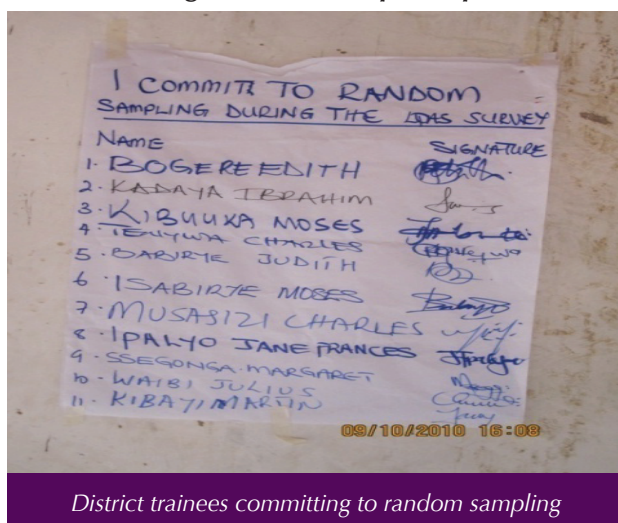 I COMMIT TO RANDOM
SAMPLING DURING THE LQAS SURVEY
NAME SIGNATURE
1. BOGERE EDITH
2. KADAYA IBRAHIM
3. KIBUUKA MOSES
4. TENYWA CHARLES
5. BABIRYE JUDITH
6. ISABIRYE MOSES
7. MUSASIZI CHARLES
8. IPALYO JANE FRANCES
9. SSEGONGA MARGARET
10. WAIBI JULIUS
11. KIBAYI MARTIN
09/10/2010 16:08
District trainees committing to random sampling